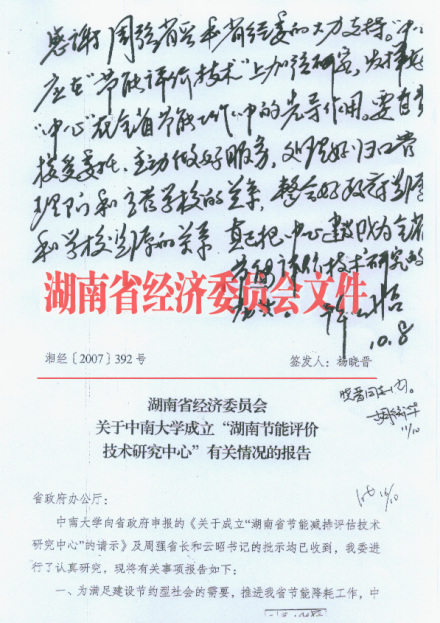 感谢周强省长和省经委的大力支持。"中心"
应在"节能评价技术"上加强研究，发挥
"中心"在全省节能工作中的先导作用。要自觉
接受委托、主动做好服务，处理好归口管
理部门和主管学校的关系，整合好政府资源
和学校资源的关系，真正把中心建设成为全省
节能评价技术研究的
10.8
湖南省经济委员会文件
湘经〔2007〕392号 签发人：杨晓晋
晓晋同志阅。
11/10
湖南省经济委员会
关于中南大学成立“湖南节能评价
技术研究中心”有关情况的报告
16/10
省政府办公厅：
中南大学向省政府申报的《关于成立“湖南省节能减排评估技术
研究中心”的请示》及周强省长和云昭书记的批示均已收到，我委进
行了认真研究，现将有关事项报告如下：
一、为满足建设节约型社会的需要，推进我省节能降耗工作，中